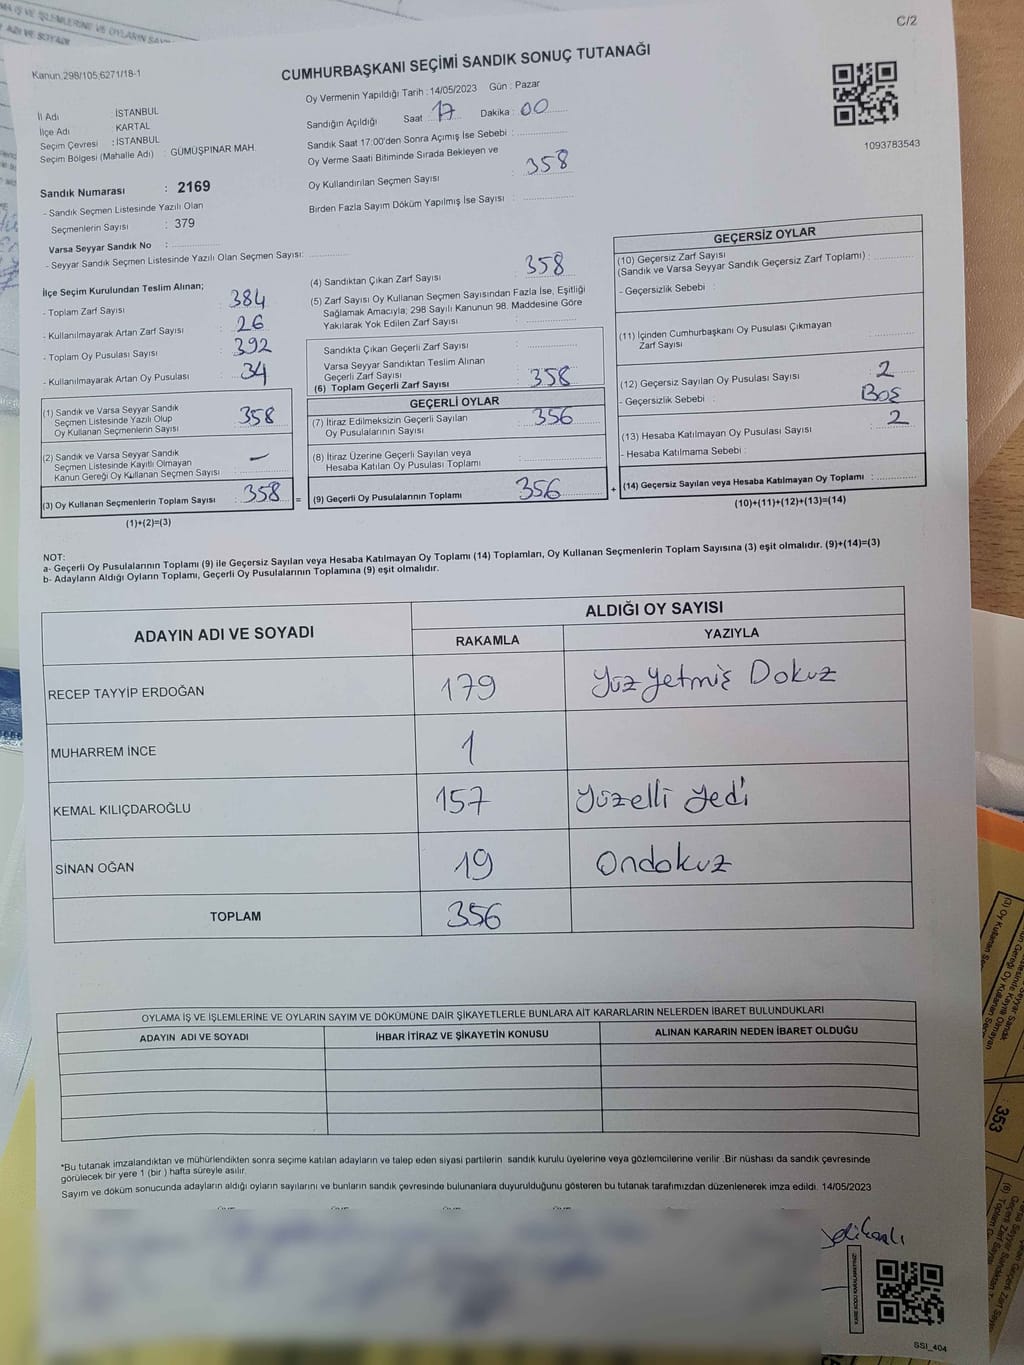 C/2
Kanun 298/105,6271/18-1
CUMHURBAŞKANI SEÇİMİ SANDIK SONUÇ TUTANAĞI
Oy Vermenin Yapıldığı Tarih : 14/05/2023 Gün : Pazar
İl Adı : İSTANBUL
İlçe Adı : KARTAL
Seçim Çevresi : İSTANBUL
Seçim Bölgesi (Mahalle Adı) : GÜMÜŞPINAR MAH
Sandığın Açıldığı Saat : 17 Dakika : 00
Sandık Saat 17:00'den Sonra Açımış İse Sebebi :
Oy Verme Saati Bitiminde Sırada Bekleyen ve
Oy Kullandırılan Seçmen Sayısı : 358
Birden Fazla Sayım Döküm Yapılmış İse Sayısı :
1093783543
Sandık Numarası : 2169
- Sandık Seçmen Listesinde Yazılı Olan
Seçmenlerin Sayısı : 379
Varsa Seyyar Sandık No :
- Seyyar Sandık Seçmen Listesinde Yazılı Olan Seçmen Sayısı:
İlçe Seçim Kurulundan Teslim Alınan;
- Toplam Zarf Sayısı : 384
- Kullanılmayarak Artan Zarf Sayısı : 26
- Toplam Oy Pusulası Sayısı : 392
- Kullanılmayarak Artan Oy Pusulası : 34
(1) Sandık ve Varsa Seyyar Sandık
Seçmen Listesinde Yazılı Olup
Oy Kullanan Seçmenlerin Sayısı : 358
(2) Sandık ve Varsa Seyyar Sandık
Seçmen Listesinde Kayıtlı Olmayan
Kanun Gereği Oy Kullanan Seçmen Sayısı : –
(3) Oy Kullanan Seçmenlerin Toplam Sayısı : 358
(1)+(2)=(3)
(4) Sandıktan Çıkan Zarf Sayısı : 358
(5) Zarf Sayısı Oy Kullanan Seçmen Sayısından Fazla İse, Eşitliği
Sağlamak Amacıyla; 298 Sayılı Kanunun 98. Maddesine Göre
Yakılarak Yok Edilen Zarf Sayısı :
Sandıkta Çıkan Geçerli Zarf Sayısı :
Varsa Seyyar Sandıktan Teslim Alınan
Geçerli Zarf Sayısı :
(6) Toplam Geçerli Zarf Sayısı : 358
GEÇERLİ OYLAR
(7) İtiraz Edilmeksizin Geçerli Sayılan
Oy Pusulalarının Sayısı : 356
(8) İtiraz Üzerine Geçerli Sayılan veya
Hesaba Katılan Oy Pusulası Toplamı :
= (9) Geçerli Oy Pusulalarının Toplamı : 356
GEÇERSİZ OYLAR
(10) Geçersiz Zarf Sayısı
(Sandık ve Varsa Seyyar Sandık Geçersiz Zarf Toplamı) :
- Geçersizlik Sebebi :
(11) İçinden Cumhurbaşkanı Oy Pusulası Çıkmayan
Zarf Sayısı :
(12) Geçersiz Sayılan Oy Pusulası Sayısı : 2
- Geçersizlik Sebebi : Boş
(13) Hesaba Katılmayan Oy Pusulası Sayısı : 2
- Hesaba Katılmama Sebebi :
+ (14) Geçersiz Sayılan veya Hesaba Katılmayan Oy Toplamı :
(10)+(11)+(12)+(13)=(14)
NOT:
a- Geçerli Oy Pusulalarının Toplamı (9) ile Geçersiz Sayılan veya Hesaba Katılmayan Oy Toplamı (14) Toplamları, Oy Kullanan Seçmenlerin Toplam Sayısına (3) eşit olmalıdır. (9)+(14)=(3)
b- Adayların Aldığı Oyların Toplamı, Geçerli Oy Pusulalarının Toplamına (9) eşit olmalıdır.
ADAYIN ADI VE SOYADI ALDIĞI OY SAYISI
RAKAMLA YAZIYLA
RECEP TAYYİP ERDOĞAN 179 Yüz yetmiş Dokuz
MUHARREM İNCE 1
KEMAL KILIÇDAROĞLU 157 Yüzelli Yedi
SİNAN OĞAN 19 Ondokuz
TOPLAM 356
OYLAMA İŞ VE İŞLEMLERİNE VE OYLARIN SAYIM VE DÖKÜMÜNE DAİR ŞİKAYETLERLE BUNLARA AİT KARARLARIN NELERDEN İBARET BULUNDUKLARI
ADAYIN ADI VE SOYADI İHBAR İTİRAZ VE ŞİKAYETİN KONUSU ALINAN KARARIN NEDEN İBARET OLDUĞU
*Bu tutanak imzalandıktan ve mühürlendikten sonra seçime katılan adayların ve talep eden siyasi partilerin sandık kurulu üyelerine veya gözlemcilerine verilir .Bir nüshası da sandık çevresinde
görülecek bir yere 1 (bir ) hafta süreyle asılır.
Sayım ve döküm sonucunda adayların aldığı oyların sayılarını ve bunların sandık çevresinde bulunanlara duyurulduğunu gösteren bu tutanak tarafımızdan düzenlenerek imza edildi. 14/05/2023
SSI_404
353